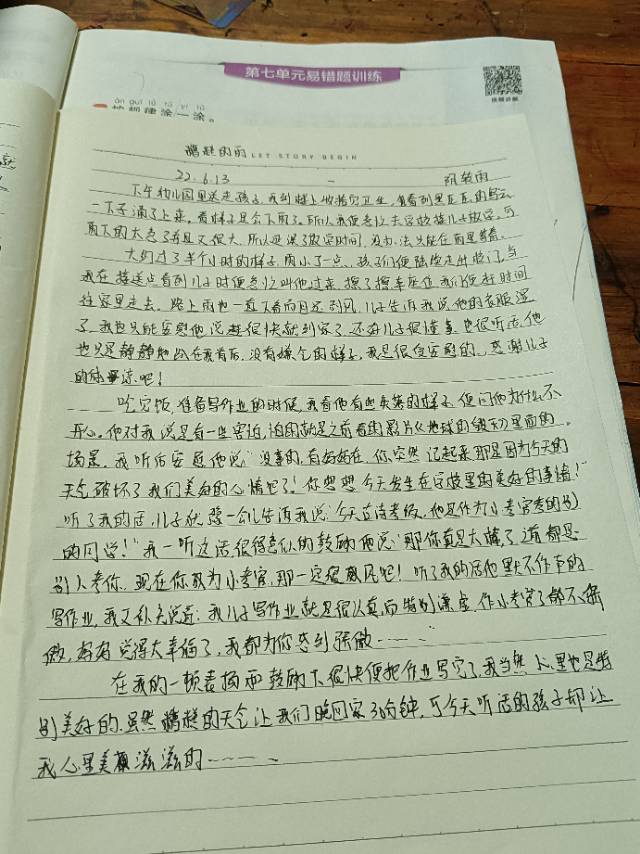 第七单元易错题训练
àn guī lǜ tú yī tú
按规律涂一涂。
糟糕的雨 LET STORY BEGIN
22.6.13
下午幼儿园里送走孩子,我到楼上收拾完卫生,看到黑压压的
一下子涌了上来。看样子是会下雨了。所以我便急忙去学校接儿子放学。可
雨下的太急了并且又很大,所以也误了放学时间。没办法只能在雨里等着。
大约过了半个小时的样子,雨小了一点,孩子们便陆续走出校门,当
我在接送点看到儿子时便急忙叫他过来,擦了擦车座位我们便赶时间
往家里走去。路上雨也一直下着而且还刮风,儿子告诉我说他的衣服湿
了,我也只能安慰他说很快就到家了,还好儿子很懂事,也很听话,他
也只是静静地坐在我背后,没有嫌弃的样子,我是很受安慰的。感谢儿子
的体谅吧!
吃完饭,准备写作业的时候,我看他有些失落的样子,便问他为什么不
开心,他对我说是有一些害怕,怕的就是之前看的影片《地球的 》里面的
场景,我听后安慰他说:“没事的,有妈妈在,你突然记起来那是因为今天的
天气破坏了我们美好的心情吧!你想想今天发生在学校里的美好的事情!”
听了我的话,儿子犹豫一会儿告诉我说:“今天古诗考级,他是作为小考官考的别
的同学!”我一听这话很得意似的鼓励他说:“那你真是太棒了,之前都是
别人考你,现在你成为小考官,那一定很威风吧!听了我的话他默不作声的
写作业,我又补充说道:我儿子写作业就是很认真,而特别谦虚,作小考官了都不骄
傲,妈妈觉得太幸福了,我都为你感到骄傲……
在我的一顿表扬和鼓励下很快便把作业写完了,我当然心里也是特
别美好的,虽然糟糕的天气让我们晚回家30分钟,可今天听话的孩子却让
我心里美滋滋的……